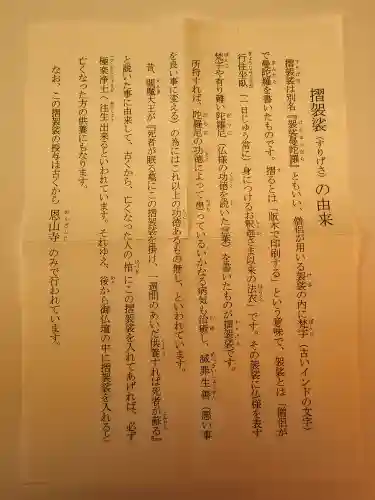 摺袈裟(すりげさ)の由来
摺袈裟は別名『袈裟曼陀羅』ともいい、僧侶が用いる袈裟の内に梵字(古いインドの文字)
で曼陀羅を書いたものです。摺るとは「版木で印刷する」という意味で、袈裟とは「僧侶が
行住坐臥(一日じゅう常に)身につけるお釈迦さま以来の法衣」です。その袈裟に仏様を表す
梵字や有り難い陀羅尼(仏様の功徳を説いた言葉)を書いたものが摺袈裟です。
所持すれば、陀羅尼の功徳によって患っているいかなる病気も治癒し、滅罪生善(悪い事
を良い事に変える)の為にはこれ以上の功徳あるもの無し、といわれています。
昔、閻魔大王が『死者が眠る墓にこの摺袈裟を掛け、一週間のあいだ供養すれば死者が蘇る』
と説いた事に由来して、古くから、亡くなった人の棺にこの摺袈裟を入れてあげれば、必ず
極楽浄土へ往生出来るといわれています。それゆえ、後から御仏壇の中に摺袈裟を入れると
亡くなった方の供養にもなります。
なお、この摺袈裟の授与は古くから恩山寺のみで行われています。